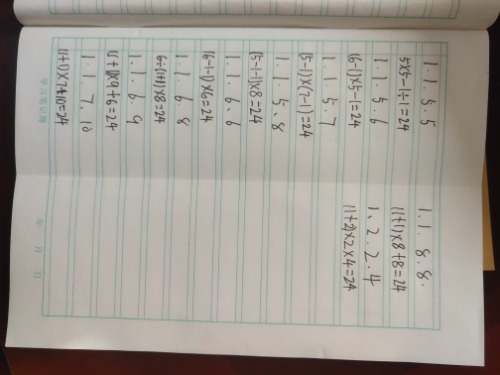 1.1.5.5
5×5-1÷1=24
1.1.5.6
(6-1)×5-1=24
1.1.5.7
(5-1)×(7-1)=24
1.1.5、8
(5-1-1)×8=24
1.1.6、6
(6-1-1)×6=24
1.1.6 8
6÷(1+1)×8=24
1.1.6.9
(1+1)×9+6=24
1.1.7,10
(1+1)×7+10=24
1.1.8.8.
(1+1)×8+8=24
1、2.2.4
(1+2)×2×4=24
年 月 日